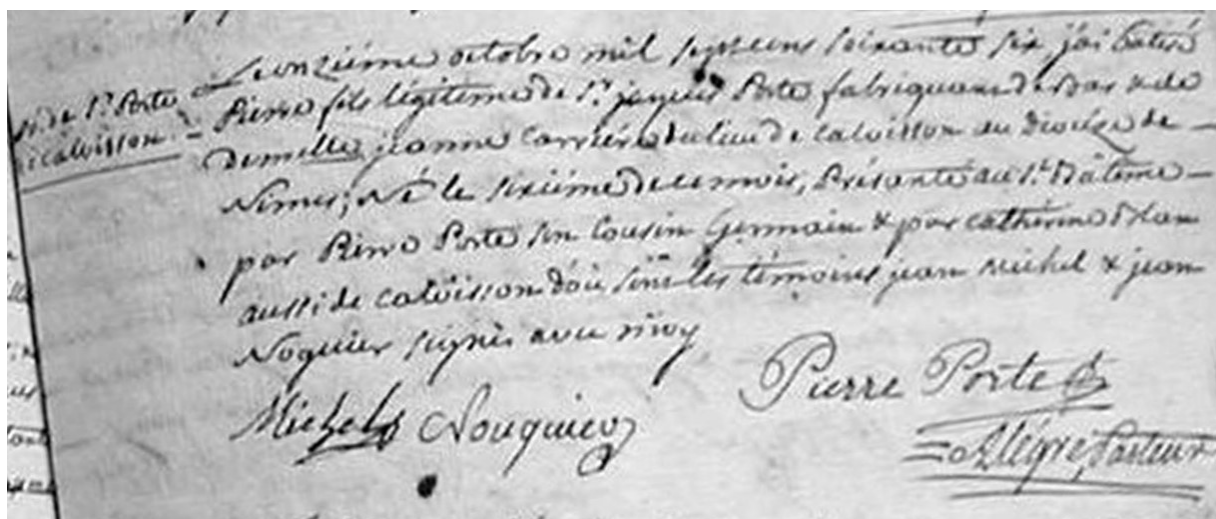 Le onzième octobre mil septcens soixante six j'ai batisé
Pierre fils légitime de Sr. jaques Porte fabriquant de bas & de
demelle jeanne Carriere du lieu de Calvisson au diocèze de
Nimes; Né le sixième de ce mois, Présenté au St. Bâteme
par Pierre Porte son Cousin Germain & par catherine
aussi de calvisson d'où sont les témoins jean Michel & jean
Noguier signés avec moy
de Sr. Porte
calvisson
Michel Nouguier
Pierre Porte
Alégre, Pasteur